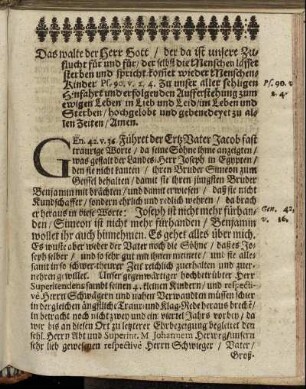 Das walte der Herr Gott / der da ist unsere Zu-
flucht für und für / der selbst die Menschen lässet
sterben und spricht kom̃et wieder Menschen-
Kinder Ps. 90. v. 2. 4. Zu unser aller sehligen
Hinfahrt und erfolgenden Aufferstehung zum
ewigen Leben in Lieb und Leid / im Leben und
Sterben / hochgelobt und gebenedeyet zu al-
len Zeiten / Amen.
Ps. 90. v.
2. 4.
GEn. 42. v. 36. Führet der Ertz-Vater Jacob fast
traurige Worte / da seine Söhne ihme anzeigen /
was gestalt der Landes-Herr Joseph in Egypten /
den sie nicht kanten / ihren Bruder Simeon zum
Geissel behalten / damit sie ihren jüngsten Bruder
Benjamin mit brächten / und damit erwiesen / daß sie nicht
Kundschaffer / sondern ehrlich und redlich wehren / da brach
er heraus in diese Worte: Joseph ist nicht mehr fürhan-
den / Simeon ist nicht mehr fürhanden / Benjamin
wollet ihr auch hinnehmen. Es gehet alles über mich.
Gen. 42.
v. 36.
Es wuste aber weder der Vater noch die Söhne / daß es Jo-
seph selber / und so sehr gut mit ihnen meinete / und sie alles
samt in so schwerer theurer Zeit reichlich zuerhalten und zuer-
nehren gewillet. Unser gegenwärtiger hochbetrübter Herr
Superitendens samt seinen 4. kleinen Kindern / und respecti-
vè Herrn Schwägern und naher Verwandten müssen schier
in dergleichen ängstliche Traur und Klag-Rede heraus breche /
in betracht noch nicht zwey und ein viertel Jahrs vorbey / da
wir bis an diesen Ort zu letzterer Ehrbezeigung begleitet den
sehl. Herrn Abt und Superint. M. Johannem Herwegs unsern
sehr lieb gewesenen respectivè Herrn Schwieger / Vater /
Groß-